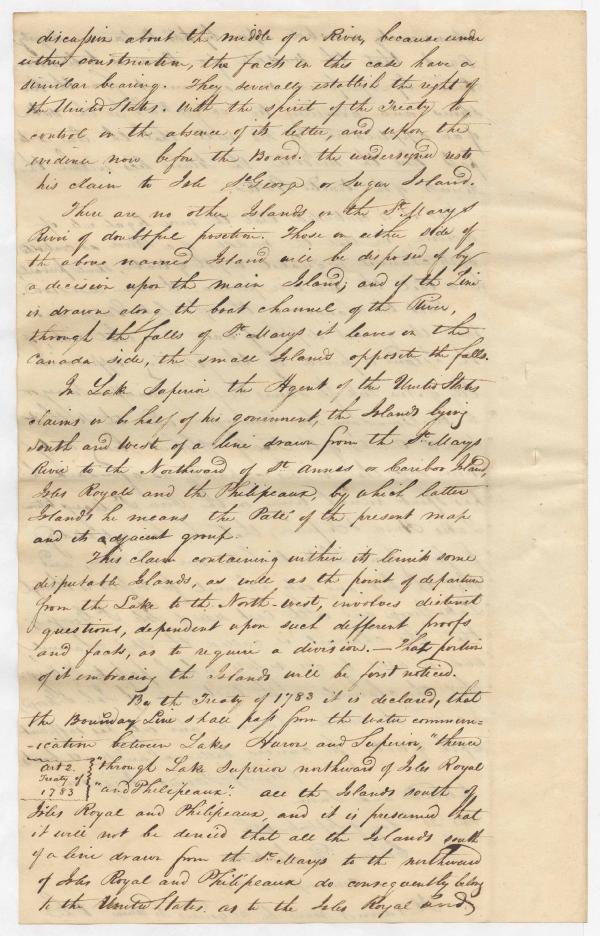 discussion about the middle of a River, because under
either construction, the facts in this case have a
similar bearing. They severally establish the right of
the United States. With the spirit of the Treaty to
control in the absence of its letter, and upon the
evidence now before the Board. the undersigned rests
his claim to Isle St. George or Sugar Island.
There are no other Islands in the St. Marys
River of doubtful position. Those on either side of
the above named Island will be disposed of by
a decision upon the main Island; and if the Line
is drawn along the boat channel of the River,
through the falls of St. Marys it leaves on the
Canada side, the small Islands opposite the falls.
In Lake Superior the Agent of the United States
claims in behalf of his government, the Islands lying
south and west of a line drawn from the St. Marys
River to the Northward of St. Annas or Caribou Island,
Isles Royale and the Philipeaux, by which latter
Islands he means the Paté of the present map
and its adjacent group.
This claim containing within its limits some
disputable Islands, as well as the point of departure
from the Lake to the North-west, involves distinct
questions, dependent upon such different proofs
and facts, as to require a division. — That portion
of it embracing the Islands will be first noticed.
By the Treaty of 1783 it is declared, that
the Boundary Line shall pass from the water commun-
-ication between Lakes Huron and Superior, "thence
Art 2.
Treaty of
1783
"through Lake Superior northward of Isles Royal
"and Philipeaux". all the Islands south of
Isles Royal and Philipeaux, and it is presumed that
it will not be denied that all the Islands south
of a line drawn from the St. Marys to the northward
of Isles Royal and Philipeaux do consequently belong
to the United States. as to the Isles Royal and